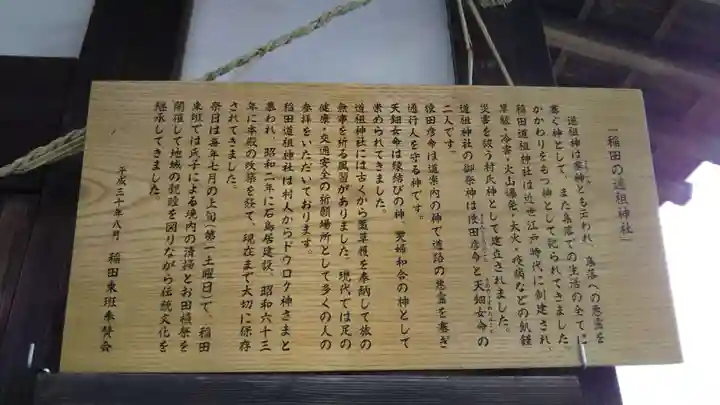 「稲田の道祖神社」
道祖神は塞神とも云われ、集落への悪霊を
塞ぐ神として、また集落での生活の全てに
かかわりをもつ神として祀られてきました。
稲田道祖神社は近世江戸時代に創建され、
旱魃・冷害・火山爆発・大火・疫病などの飢饉
災害を救う村氏神として建立されました。
道祖神社の御祭神は猿田彦命と天鈿女命の
二人です。
猿田彦命は道案内の神で道路の悪霊を塞ぎ
通行人を守る神です。
天鈿女命は縁結びの神、夫婦和合の神として
崇められてきました。
道祖神社には古くから藁草履を奉納して旅の
無事を祈る風習がありました。現代では足の
健康・交通安全の祈願場所として多くの人の
参拝をいただいております。
稲田道祖神社は村人からドウロク神さまと
慕われ、昭和二年に石鳥居建設、昭和六十三
年に本殿の改築を経て、現在まで大切に保存
されてきました。
祭日は毎年七月の上旬(第一土曜日)で、稲田
東班では氏子による境内の清掃とお田植祭を
開催して地域の親睦を図りながら伝統文化を
継承してきました。
平成三十年八月 稲田東班奉賛会